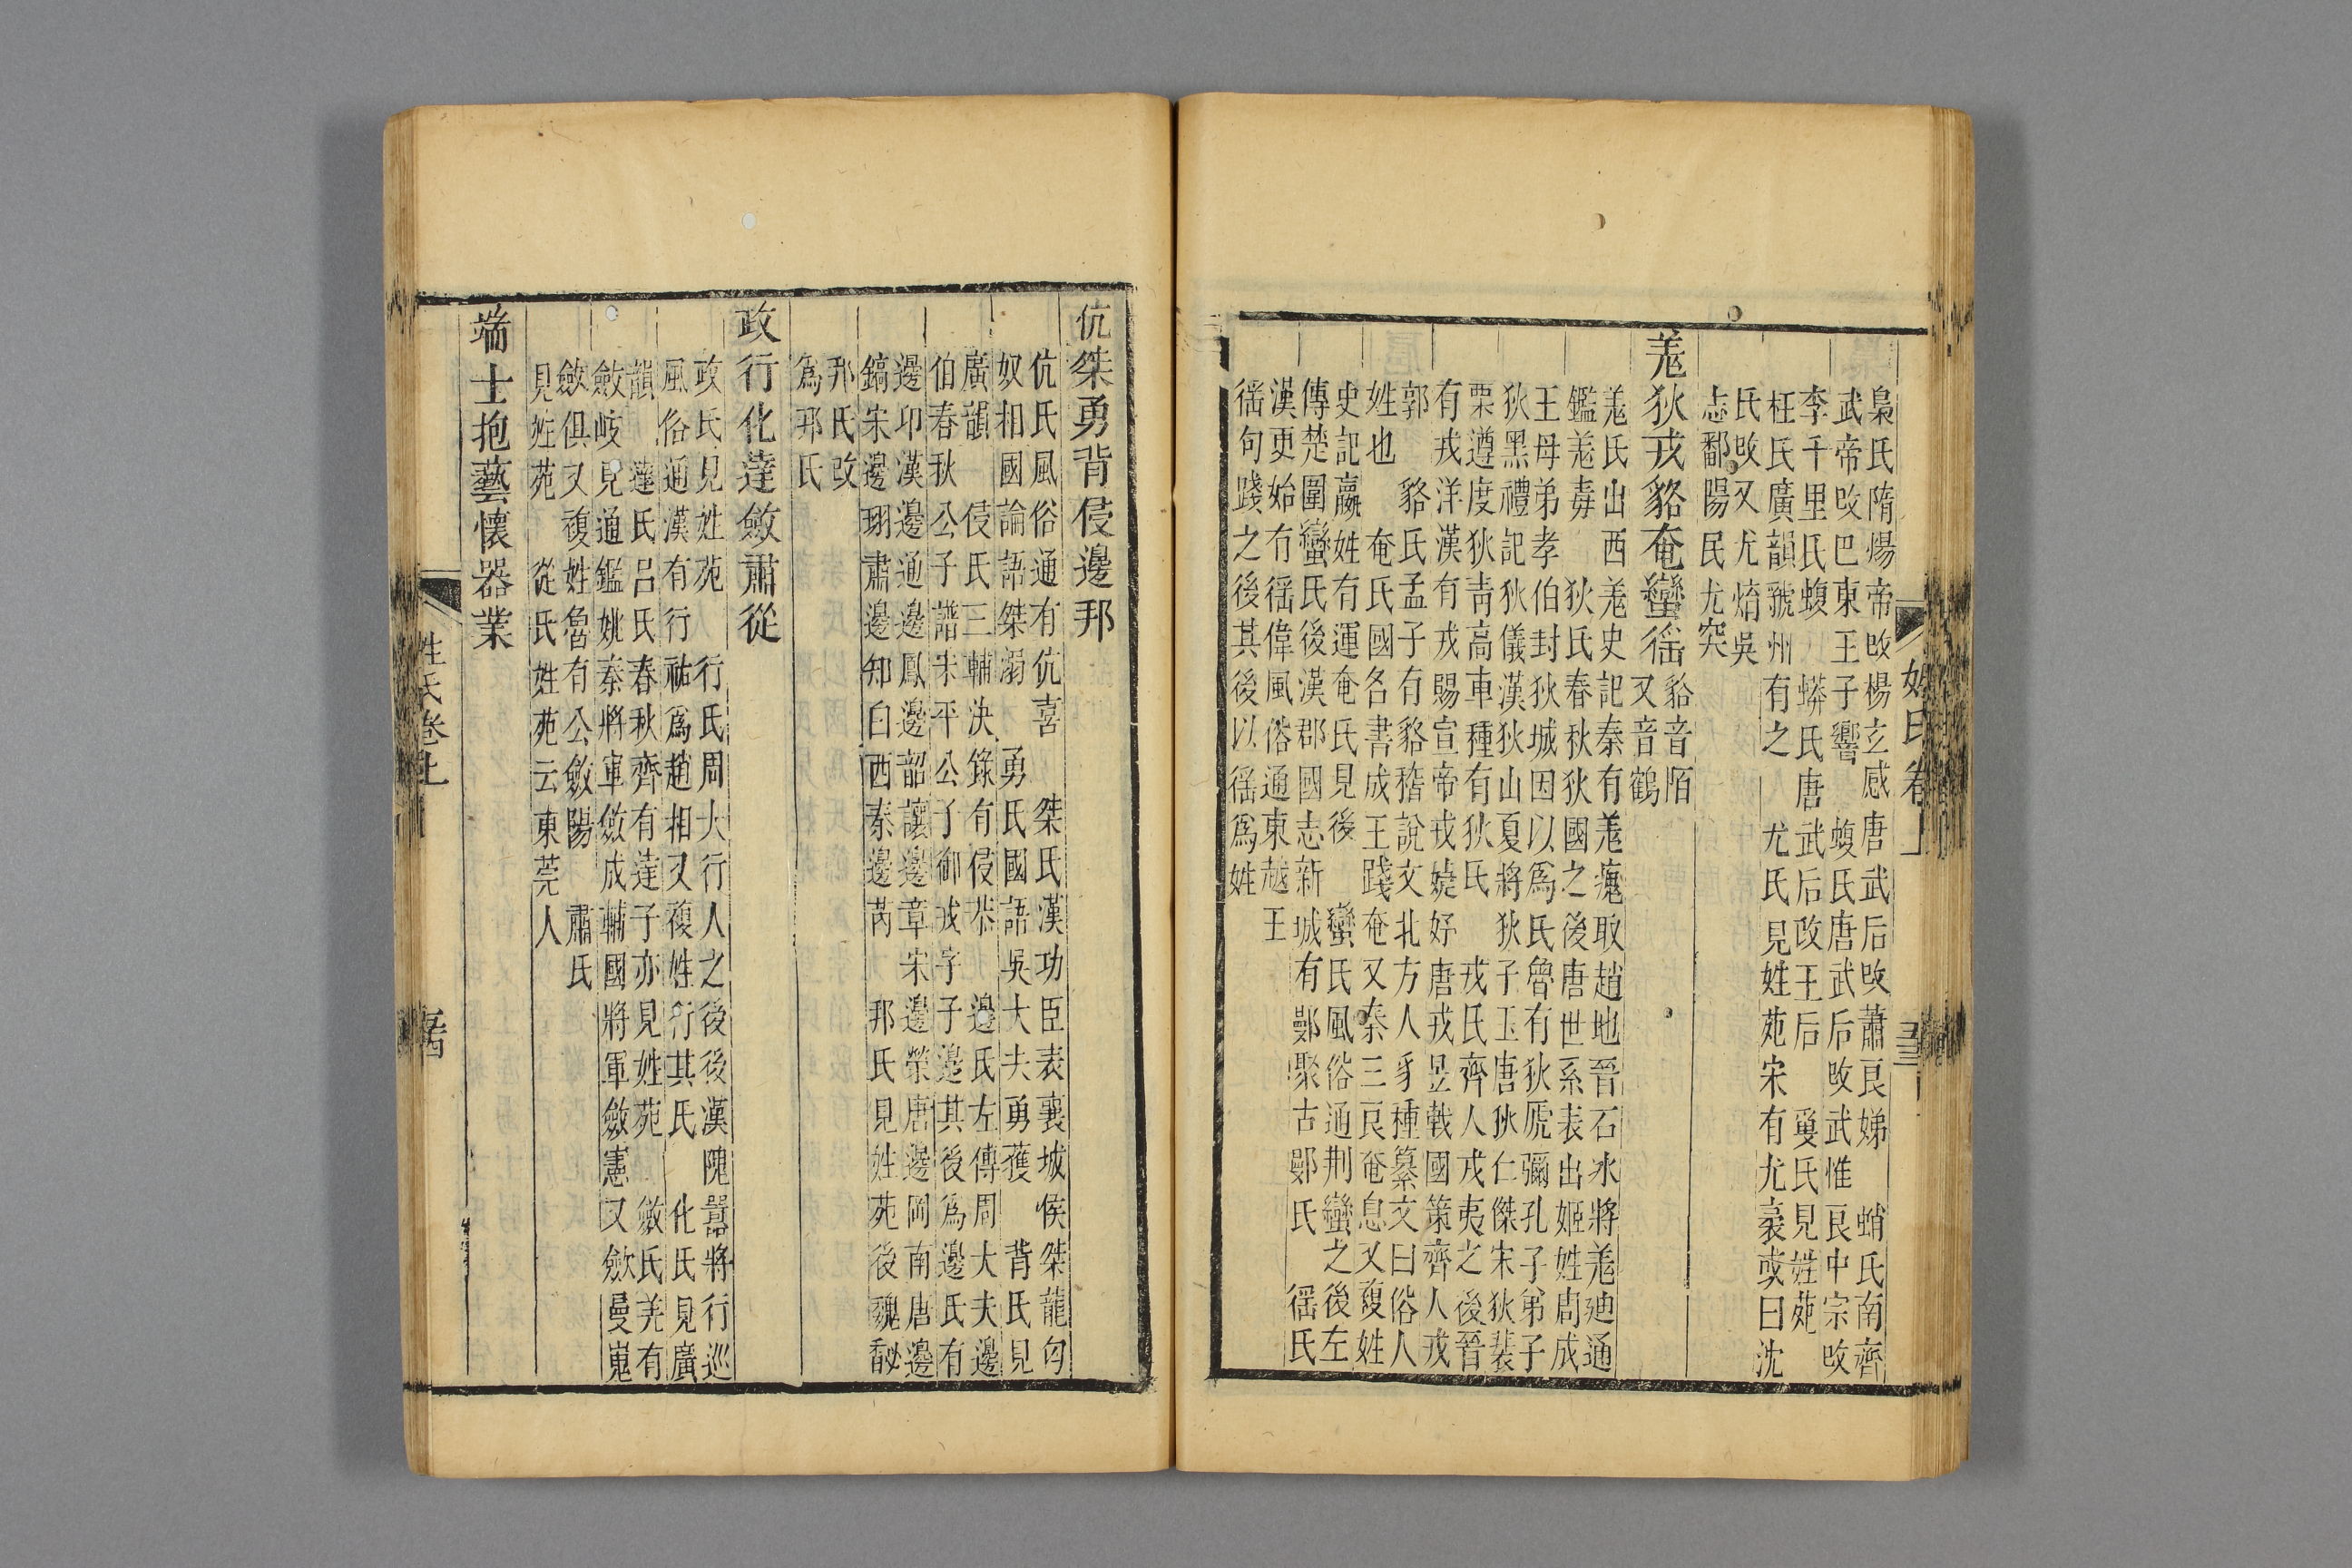 梟氏隋煬帝改楊玄感唐武后改蕭良娣 蛸氏南齊
武帝改巴東王子響 蝮氏唐武后改武惟良中宗改
李千里氏蝮 蟒氏唐武后改王后 㚟氏見姓苑
枉氏廣韻虢州有之 尤氏見姓苑宋有尤袤或曰沈
氏改又尤焴吳
志鄱陽民尤突
羗狄戎貉奄蠻徭
貉音陌
又音鶴
羗氏出西羗史記秦有羗瘣取趙地晉石氷將羗廸通
鑑羗毐 狄氏春秋狄國之後唐世系表出姬姓周成
王母弟孝伯封狄城因以爲氏魯有狄虒彌孔子弟子
狄黑禮記狄儀漢狄山夏將狄子玉唐狄仁傑宋狄裴
栗遵度狄靑高車種有狄氏 戎氏齊人戎夷之後晉
有戎洋漢有戎賜宣帝戎婕妤唐戎昱戰國策齊人戎
郭 貉氏孟子有貉稽說文北方人豸種纂文曰俗人
姓也 奄氏國名書成王踐奄又秦三良奄息又複姓
史記嬴姓有運奄氏見後 蠻氏風俗通荆蠻之後左
傳楚圍蠻氏後漢郡國志新城有鄤聚古鄤氏 徭氏
漢更始有徭偉風俗通東越王
徭句踐之後其後以徭爲姓
姓氏卷上
伉桀勇背侵邊邦
伉氏風俗通有伉喜 桀氏漢功臣表襄城侯桀龍匈
奴相國論語桀溺 勇氏國語吳大夫勇獲 背氏見
廣韻 侵氏三輔決錄有侵恭 邊氏左傳周大夫邊
伯春秋公子譜宋平公子御戎字子邊其後爲邊氏有
邊卬漢邊通邊鳳邊韶讓邊章宋邊榮唐邊岡南唐邊
鎬宋邊珝肅邊知白西秦邊芮 邦氏見姓苑後魏秘
邦氏改
爲邳氏
政行化達斂肅從
政氏見姓苑 行氏周大行人之後後漢隗囂將行巡
風俗通漢有行祐爲趙相又複姓行其氏 化氏見廣
韻 達氏呂氏春秋齊有達子亦見姓苑 斂氏羌有
斂岐見通鑑姚秦將軍斂成輔國將軍斂憲又斂曼嵬
斂俱又複姓魯有公斂陽 肅氏
見姓苑 從氏姓苑云東莞人
端士抱藝懷器業
姓氏卷上